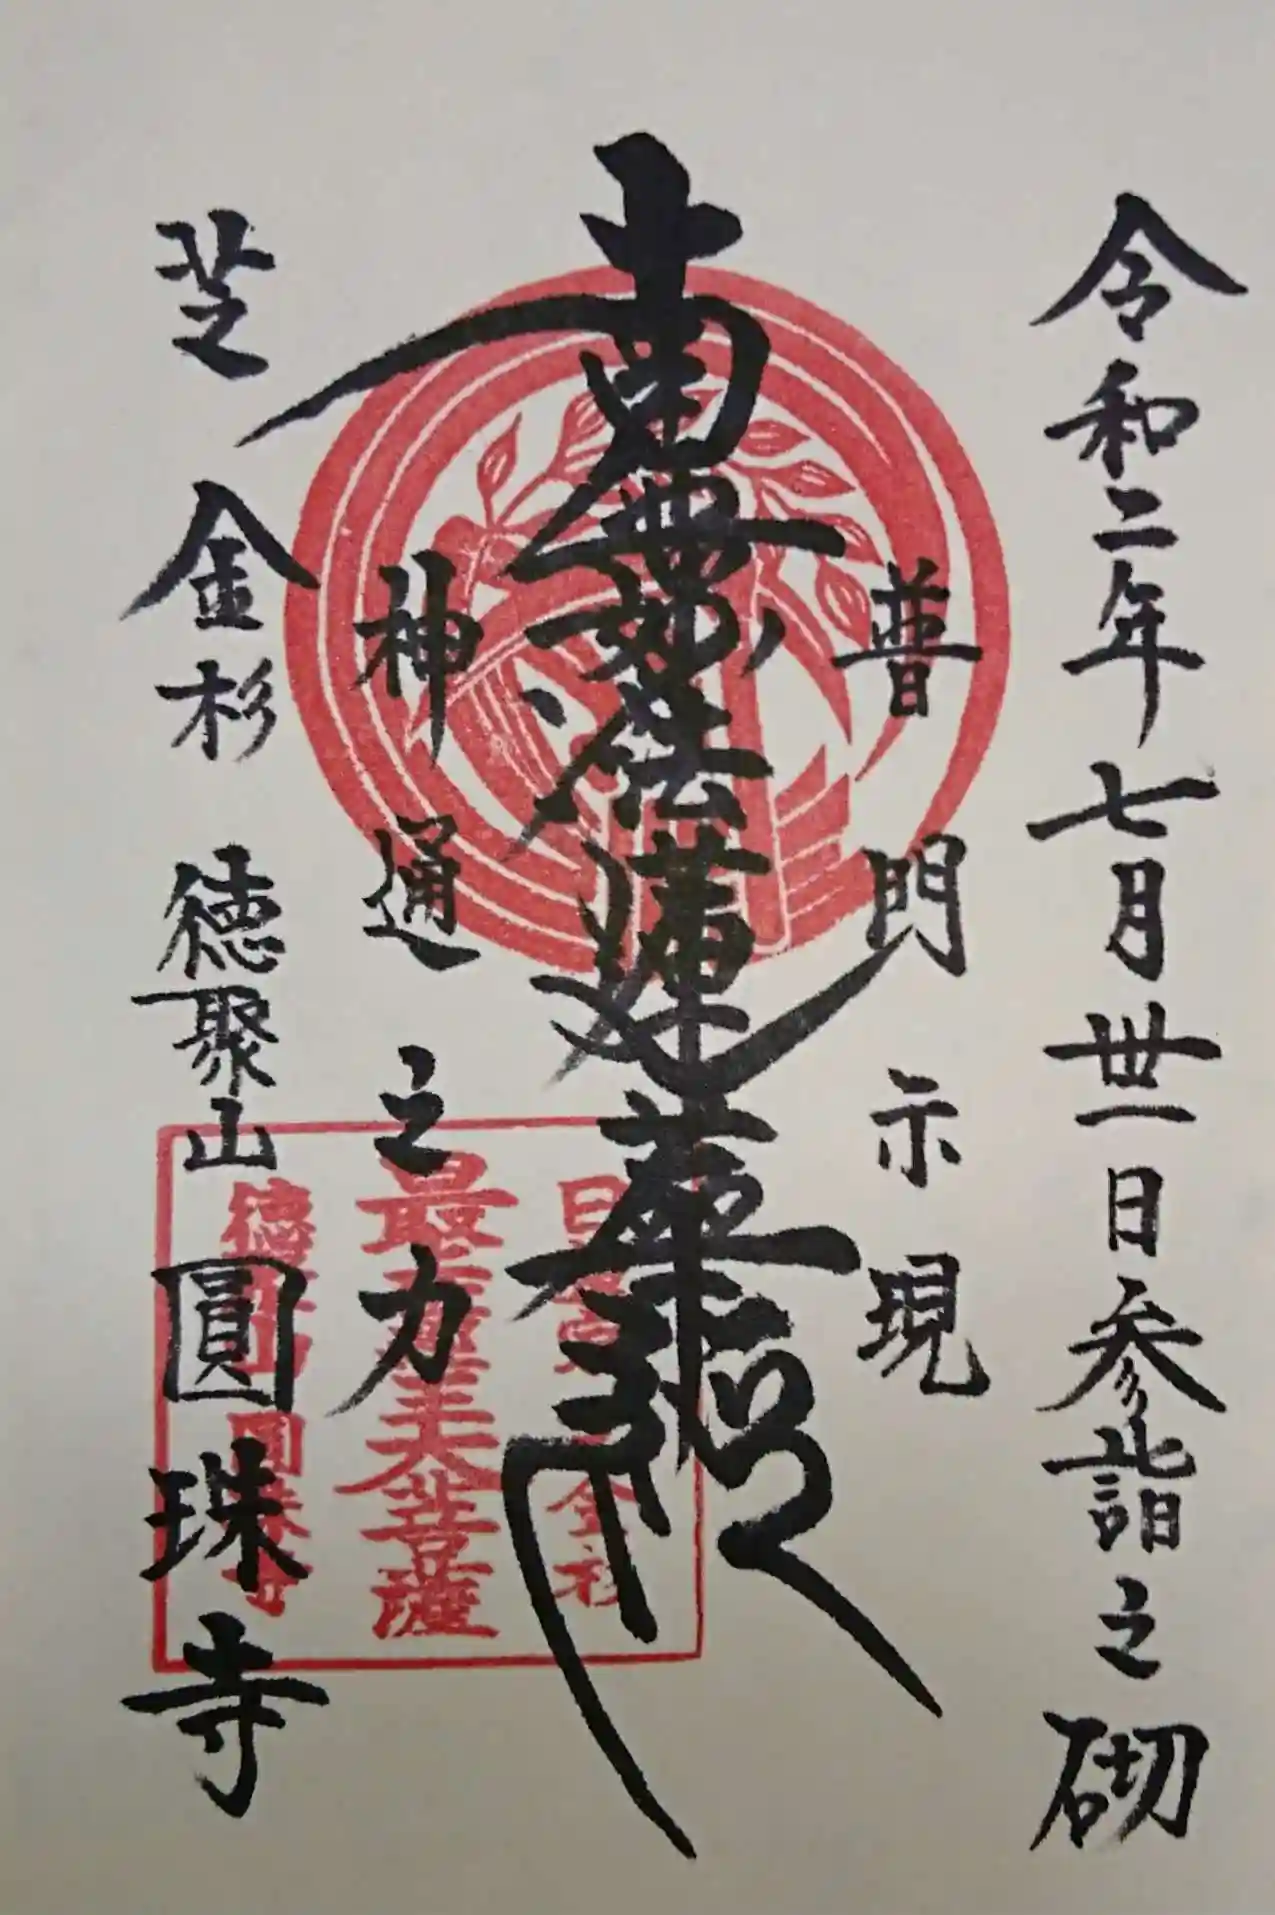 令和二年七月卅一日参詣之砌
普門示現
南無妙法蓮華経
神通之力
芝金杉 徳聚山 圓珠寺
金杉
最 美菩薩
徳 山 圓珠寺